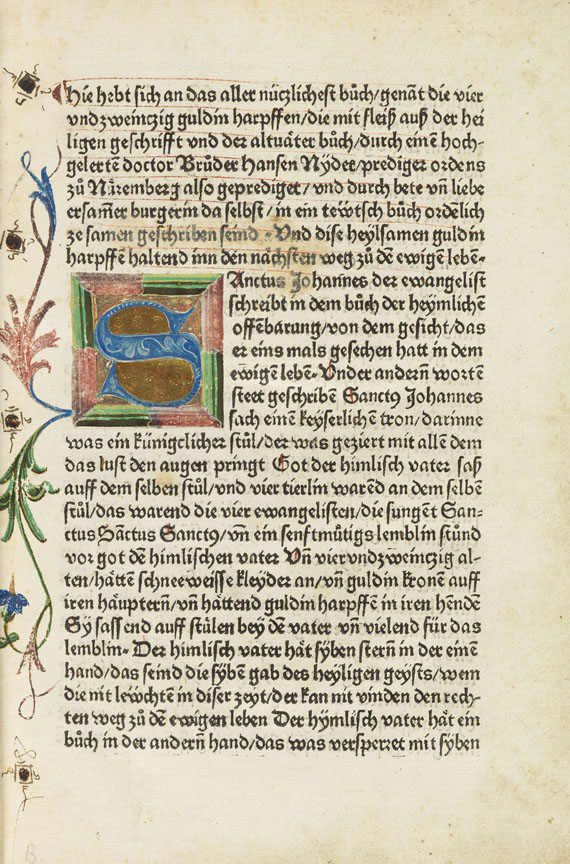 Hie hebt sich an das aller nüczlichest bůch/genāt die vier
vnd zweinczig guldin harpffen/die mit fleiß auß der hei
ligen geschrifft vnd der altuäter bůch/durch einē hoch-
gelertē doctor Brůder Hansen Nyder/prediger ordens
zů Nüremberg also geprediget/vnd durch bete vñ liebe
ersam̄er burgerin da selbst/in ein tewtsch bůch ordēlich
ze samen geschriben seind. Vnd dise heylsamen guldin
harpffē haltend inn den nächsten weg zů dē ewigē lebē.
SAnctus Johannes der ewangelist
schreibt in dem bůch der heymlichē
offēbarung/von dem gesicht/das
er eins mals gesechen hatt in dem
ewigē lebē. Vnder andern̄ wortē
steet geschribē Sanctꝰ Johannes
sach einē keyserlichē tron/darinne
was ein künigclicher stůl/der was geziert mit allē dem
das lust den augen pringt Got der himlisch vater saß
auff dem selben stůl/vnd vier tierlin warēd an dem selbē
stůl/das warend die vier ewangelistē/die sungēt San-
ctus Sāctus Sanctꝰ/vñ ein senftmütigs lemblin stůnd
vor got dē himlischen vater Vñ vierundzweinczig al-
ten/hättē schneeweisse kleyder an/vñ guldin kronē auff
iren häuptern̄/vñ hättend guldin harpffē in iren hēndē
Sy sassend auff stülen bey dē vater vñ vielend für das
lemblin. Der himlisch vater hät syben stern̄ in der einē
hand/das seind die sybē gab des heyligen geysts/wem
die nit lewchtē in diser zeyt/der kan nit vinden den rech-
ten weg zů dē ewigen leben Der hymlisch vater hät ein
bůch in der andern̄ hand/das was versperret mit syben